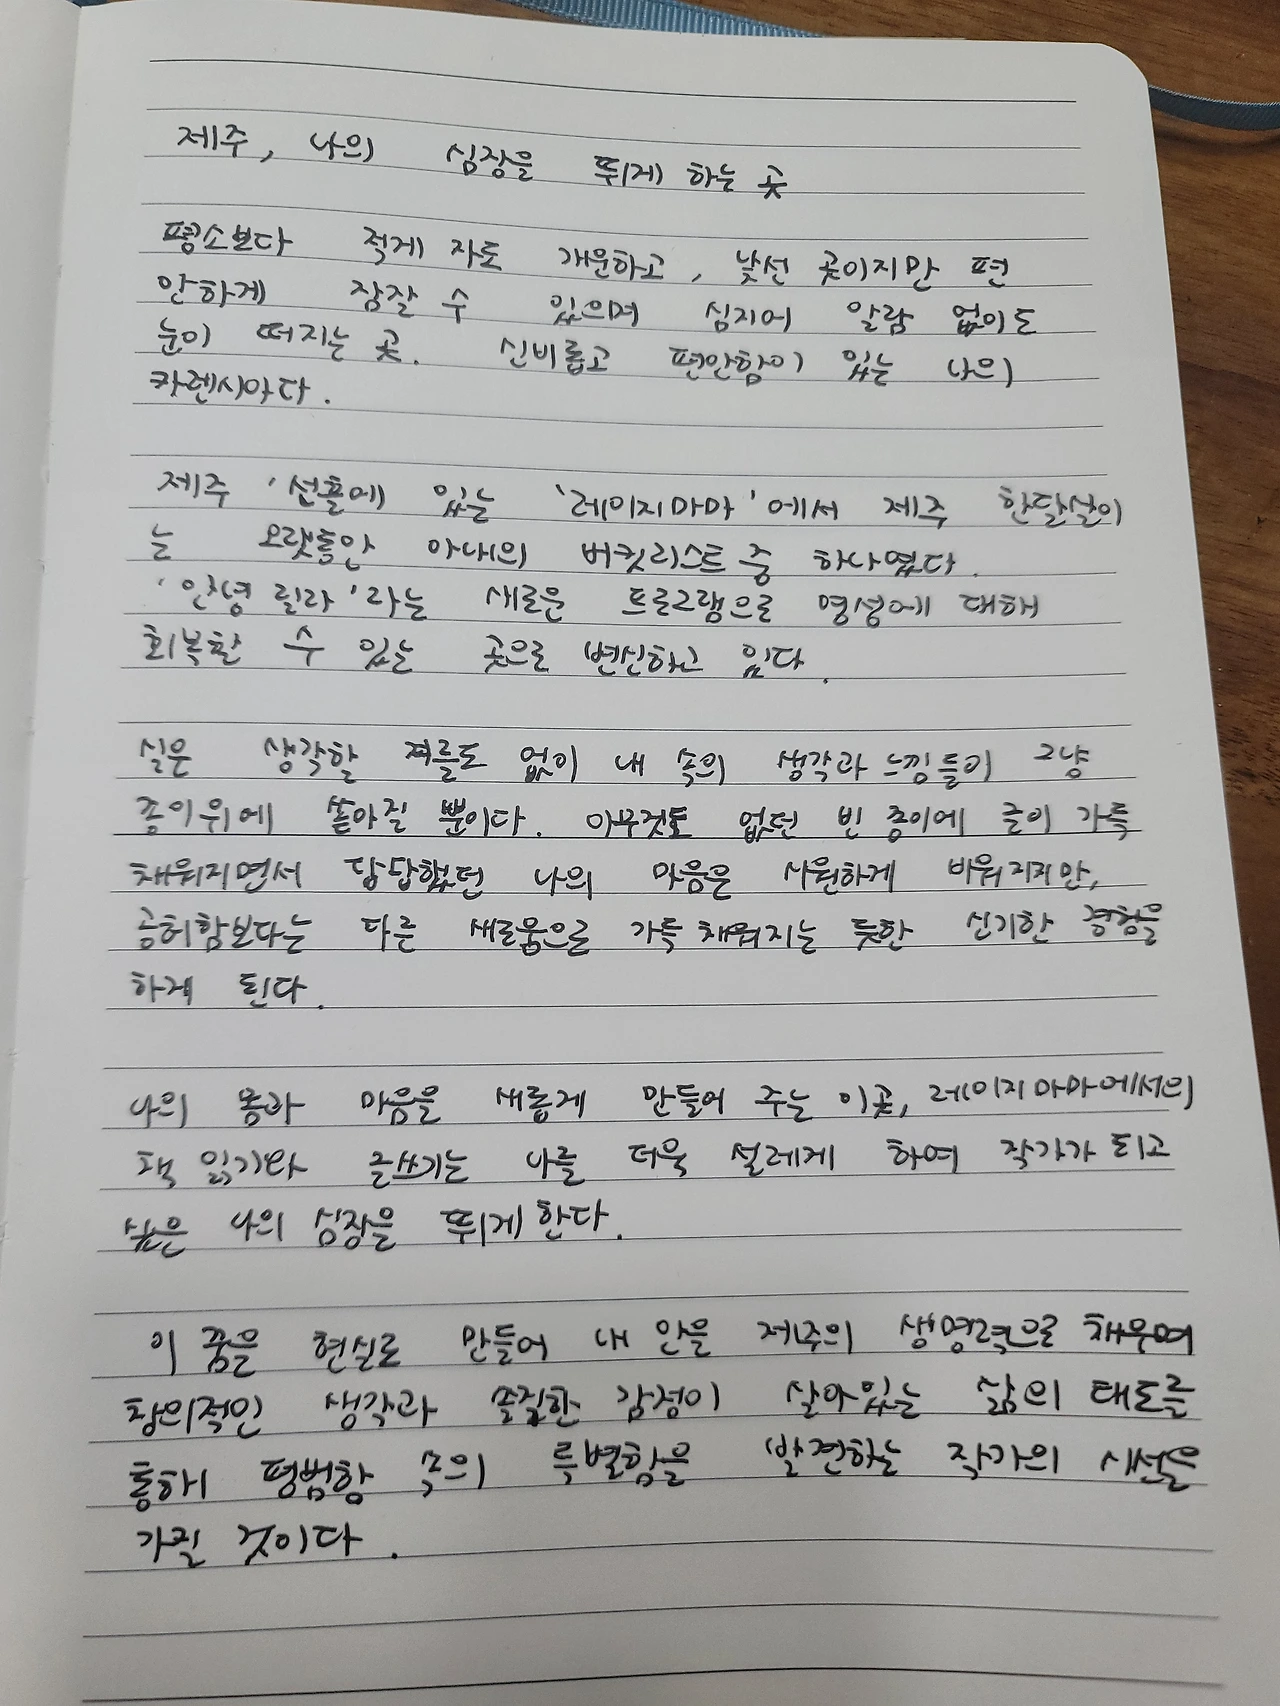 제주, 나의 심장을 뛰게 하는 곳
평소보다 적게 자도 개운하고, 낯선 곳이지만 편
안하게 잠잘 수 있으며 심지어 알람 없이도
눈이 떠지는 곳. 신비롭고 편안함이 있는 나의
카렌시아다.
제주 '선흘에 있는 '레이지마마'에서 제주 한달살이
는 오랫동안 아내의 버킷리스트 중 하나였다.
'안녕 릴라'라는 새로운 프로그램으로 명성에 대해
회복할 수 있는 곳으로 변신하고 있다.
실은 생각할 겨를도 없이 내 속의 생각과 느낌들이 그냥
종이위에 쏟아질 뿐이다. 아무것도 없던 빈 종이에 글이 가득
채워지면서 답답했던 나의 마음은 시원하게 비워지지만,
공허함보다는 다른 새로움으로 가득 채워지는 듯한 신기한 경험을
하게 된다.
나의 몸과 마음을 새롭게 만들어 주는 이곳, 레이지마마에서의
책 읽기와 글쓰기는 나를 더욱 설레게 하여 작가가 되고
싶은 나의 심장을 뛰게 한다.
이 꿈을 현실로 만들어 내 안을 제주의 생명력으로 채우며
창의적인 생각과 솔직한 감정이 살아있는 삶의 태도를
통해 평범함 속의 특별함을 발견하는 작가의 시선을
가질 것이다.